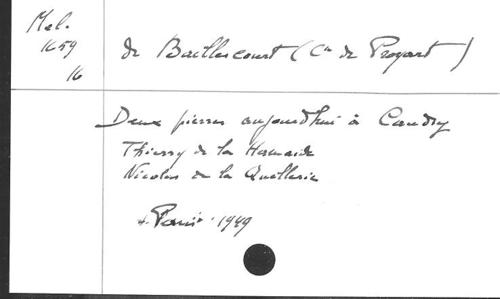 Mel.
1659
16
de Baillescourt (Cte de Proyart)
Deux pierres aujourd'hui à Caudry
Thierry de la Hamaide
Nicolas de la Quellerie
Paris 1949